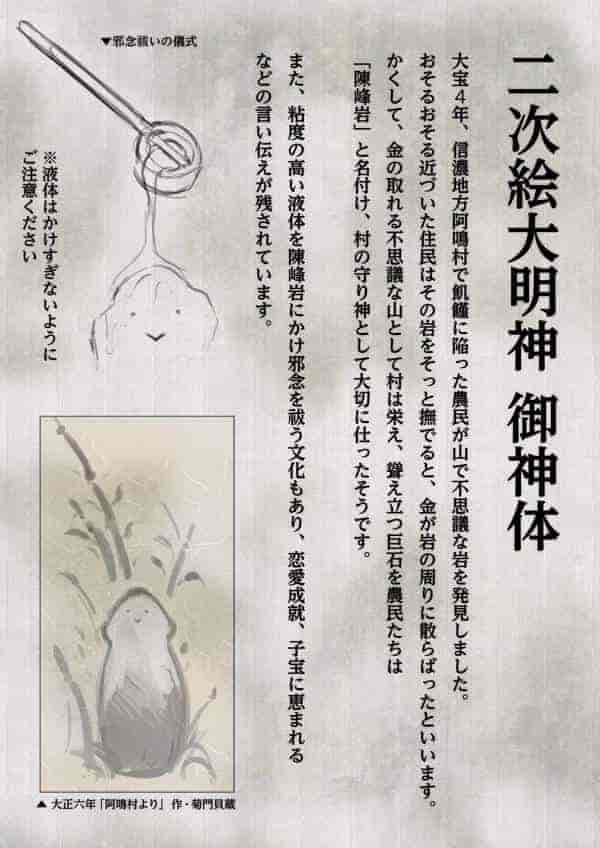 二次絵大明神 御神体
大宝４年、信濃地方阿鳴村で飢饉に陥った農民が山で不思議な岩を発見しました。
おそるおそる近づいた住民はその岩をそっと撫でると、金が岩の周りに散らばったといいます。
かくして、金の取れる不思議な山として村は栄え、聳え立つ巨石を農民たちは
「陳峰岩」と名付け、村の守り神として大切に仕ったそうです。
また、粘度の高い液体を陳峰岩にかけ邪念を祓う文化もあり、恋愛成就、子宝に恵まれる
などの言い伝えが残されています。
▼邪念祓いの儀式
※液体はかけすぎないように
ご注意ください
▲ 大正六年「阿鳴村より」 作・菊門貝蔵